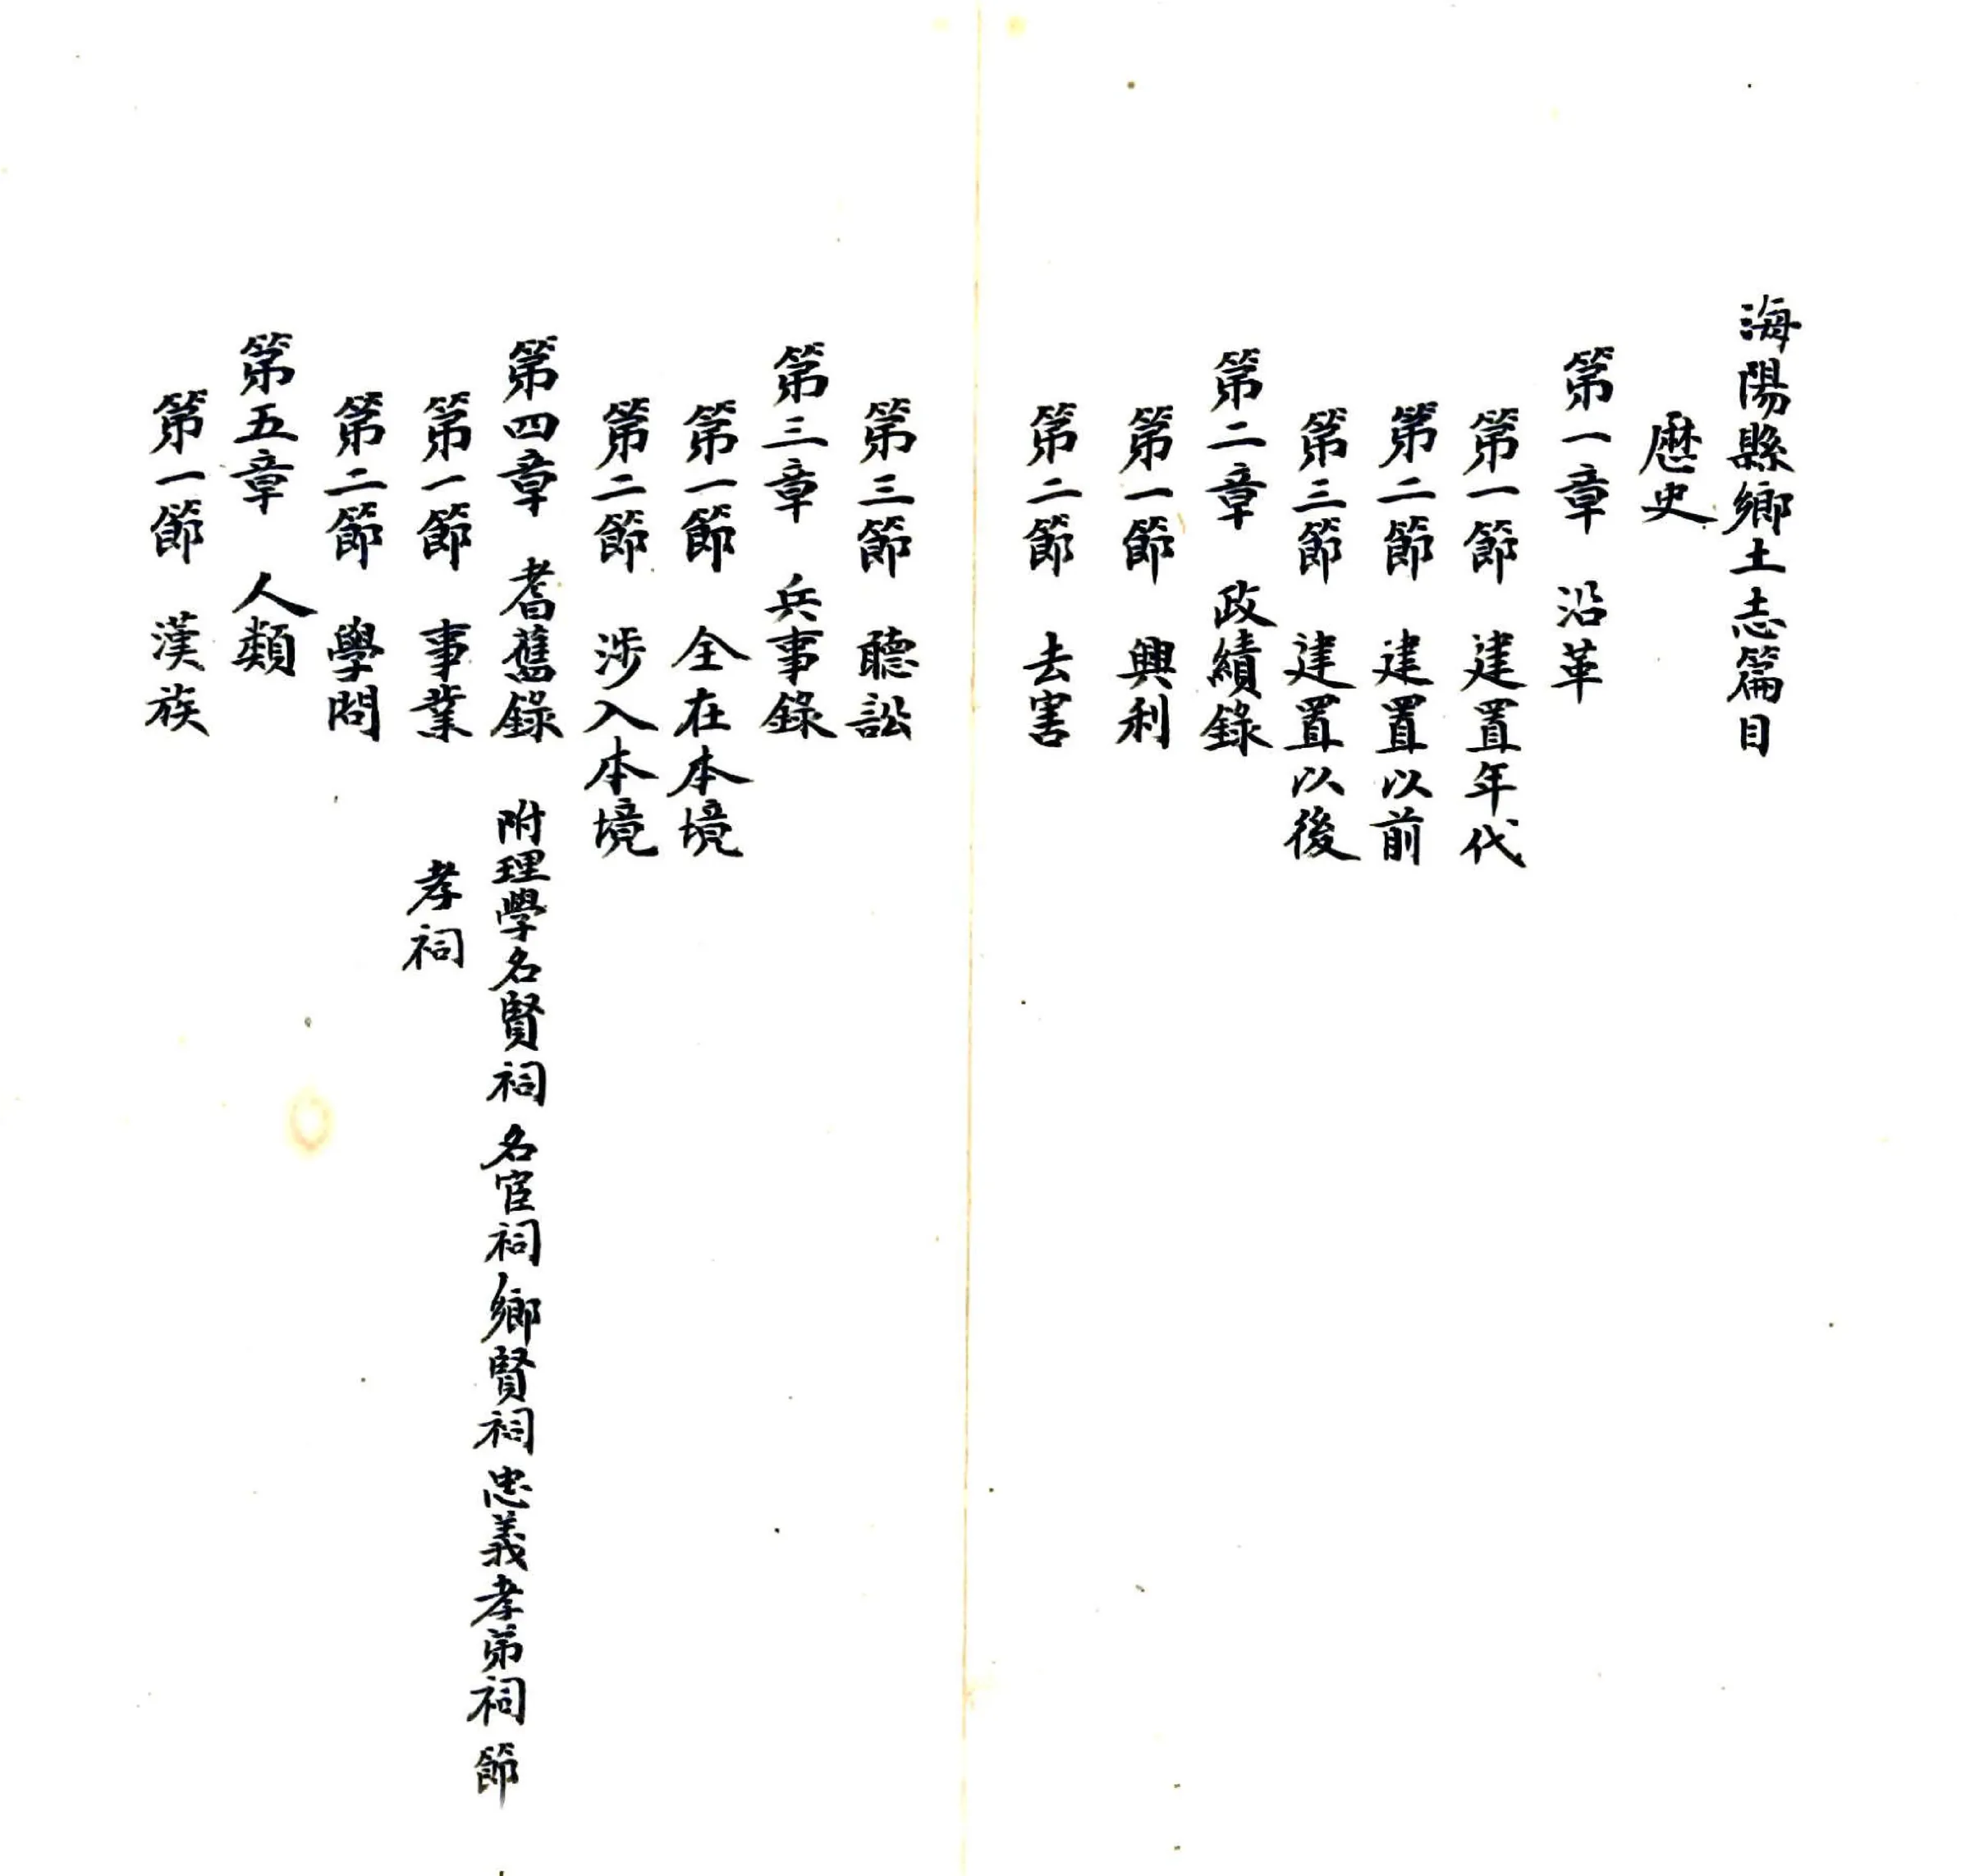 海陽縣鄉土志篇目
歷史
第一章 沿革
第一節 建置年代
第二節 建置以前
第三節 建置以後
第二章 政績錄
第一節 興利
第二節 去害
第三節 聽訟
第三章 兵事錄
第一節 全在本境
第二節 涉入本境
第四章 耆舊錄 附理學名賢祠 名宦祠 鄉賢祠 忠義孝弟祠 節
孝祠
第一節 事業
第二節 學問
第五章 人類
第一節 漢族